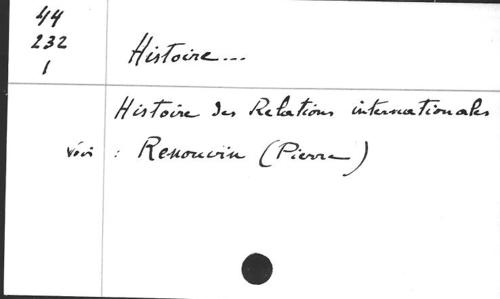 44
232
1
Histoire...
Histoire des Relations internationales
Voir : Renouvin (Pierre)